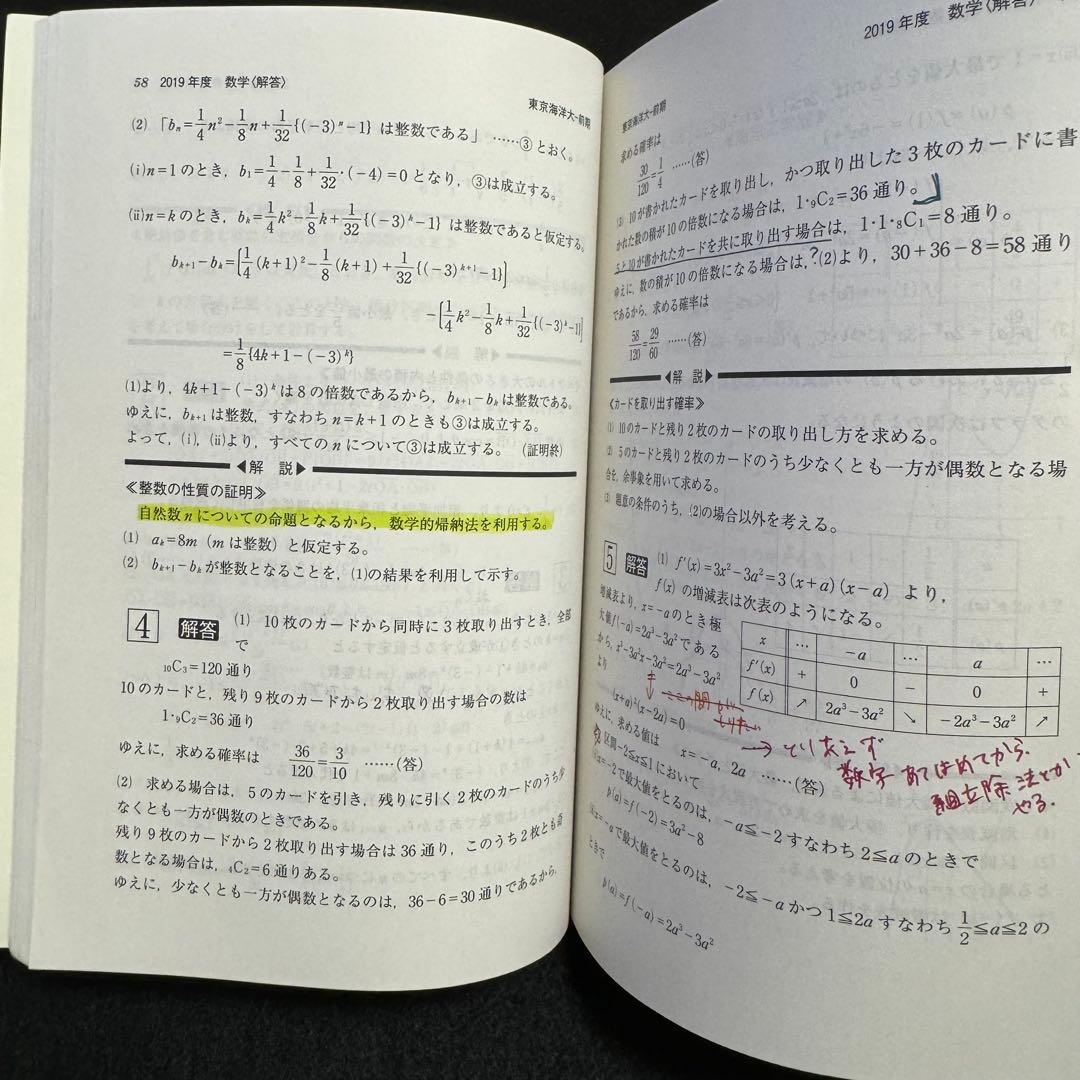 58 2019年度 数学〈解答〉
東京海洋大-前期
(2) 「bₙ=1/4n²−1/8n+1/32{(−3)ⁿ−1} は整数である」 ……③とおく。
(i)n=1のとき, b₁=1/4−1/8+1/32·(−4)=0となり, ③は成立する。
(ii)n=kのとき, bₖ=1/4k²−1/8k+1/32{(−3)ᵏ−1} は整数であると仮定する。
bₖ₊₁−bₖ=[1/4(k+1)²−1/8(k+1)+1/32{(−3)ᵏ⁺¹−1}]
−[1/4k²−1/8k+1/32{(−3)ᵏ−1}]
=1/8{4k+1−(−3)ᵏ}
(1)より, 4k+1−(−3)ᵏは8の倍数であるから, bₖ₊₁−bₖは整数である。
ゆえに, bₖ₊₁は整数, すなわちn=k+1のときも③は成立する。
よって, (i), (ii)より, すべてのnについて③は成立する。 (証明終)
◀解 説▶
≪整数の性質の証明≫
自然数nについての命題となるから, 数学的帰納法を利用する。
(1) aₖ=8m (mは整数) と仮定する。
(2) bₖ₊₁−bₖが整数となることを, (1)の結果を利用して示す。
4 解答 (1) 10枚のカードから同時に3枚取り出すとき, 全部
で
₁₀C₃=120通り
10のカードと, 残り9枚のカードから2枚取り出す場合の数は
1·₉C₂=36通り
ゆえに, 求める確率は 36/120=3/10 ……(答)
(2) 求める場合は, 5のカードを引き, 残りに引く2枚のカードのうち少
なくとも一方が偶数のときである。
残り9枚のカードから2枚取り出す場合は36通り, このうち2枚とも奇
数となる場合は, ₄C₂=6通りある。
ゆえに, 少なくとも一方が偶数となるのは, 36−6=30通りであるから,
2019年度 数学〈解答〉
東京海洋大-前期
求める確率は
30/120=1/4 ……(答)
(3) 10が書かれたカードを取り出し, かつ取り出した3枚のカードに書
かれた数の積が10の倍数になる場合は, 1·₉C₂=36通り。
5と10が書かれたカードを共に取り出す場合は, 1·1·₈C₁=8通り。
ゆえに, 数の積が10の倍数になる場合は,?(2)より, 30+36−8=58通り
であるから, 求める確率は
58/120=29/60 ……(答)
◀解 説▶
≪カードを取り出す確率≫
(1) 10のカードと残り2枚のカードの取り出し方を求める。
(2) 5のカードと残り2枚のカードのうち少なくとも一方が偶数となる場
合を, 余事象を用いて求める。
(3) 題意の条件のうち, (2)の場合以外を考える。
5 解答 (1) f′(x)=3x²−3a²=3(x+a)(x−a) より,
f(x) の増減表は次表のようになる。
増減表より, x=−aのとき極
大値f(−a)=2a³−3a²である
から, x³−3a²x−3a²=2a³−3a²
より
(x+a)²(x−2a)=0
ゆえに, 求める値は x=−a, 2a ……(答)
x … −a … a …
f′(x) + 0 − 0 +
f(x) ↗ 2a³−3a² ↘ −2a³−3a² ↗
→ とりあえず
数字 あてはめてから
組立除法とか
やる.
区間−2≦x≦1において
x=−2で最大値をとるのは, −a≦−2すなわち2≦aのときで
p(a)=f(−2)=3a²−8
x=−aで最大値をとるのは, −2≦−aかつ1≦2aすなわち1/2≦a≦2の
ときで
p(a)=f(−a)=2a³−3a²